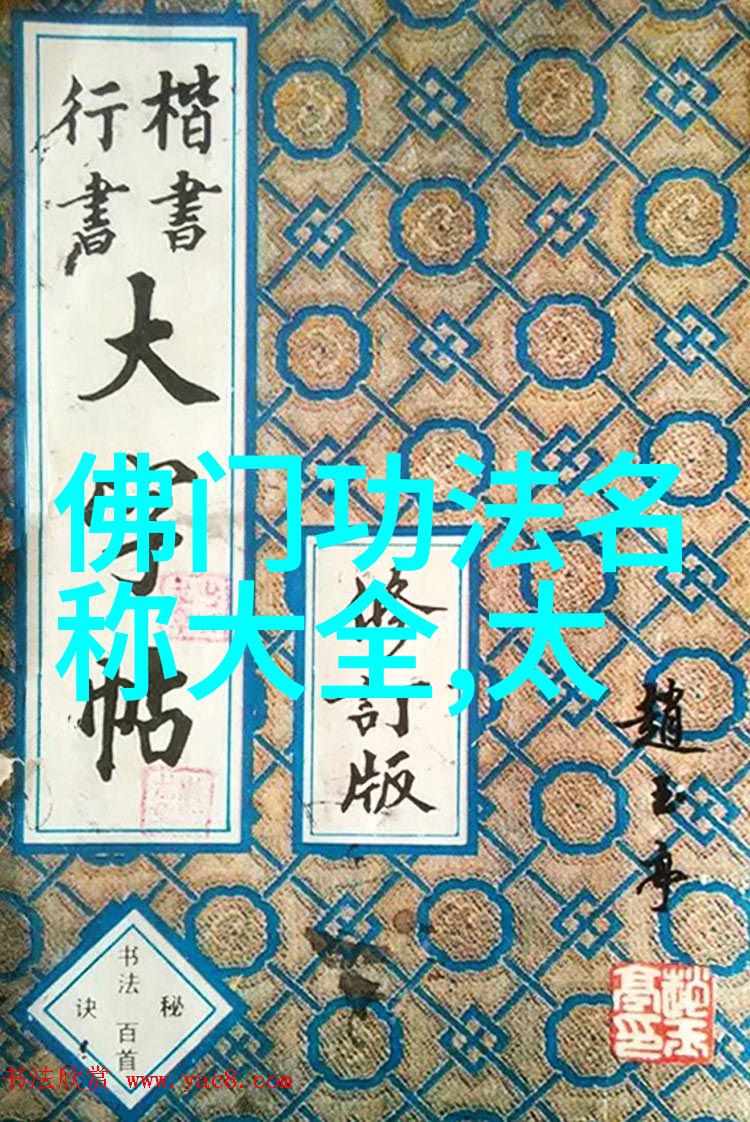 楷書
行書
大字帖
修訂版
趙玉亭
佛门功法名
称大全,太
书法百首
秘诀
书法欣赏 www.yac8.com